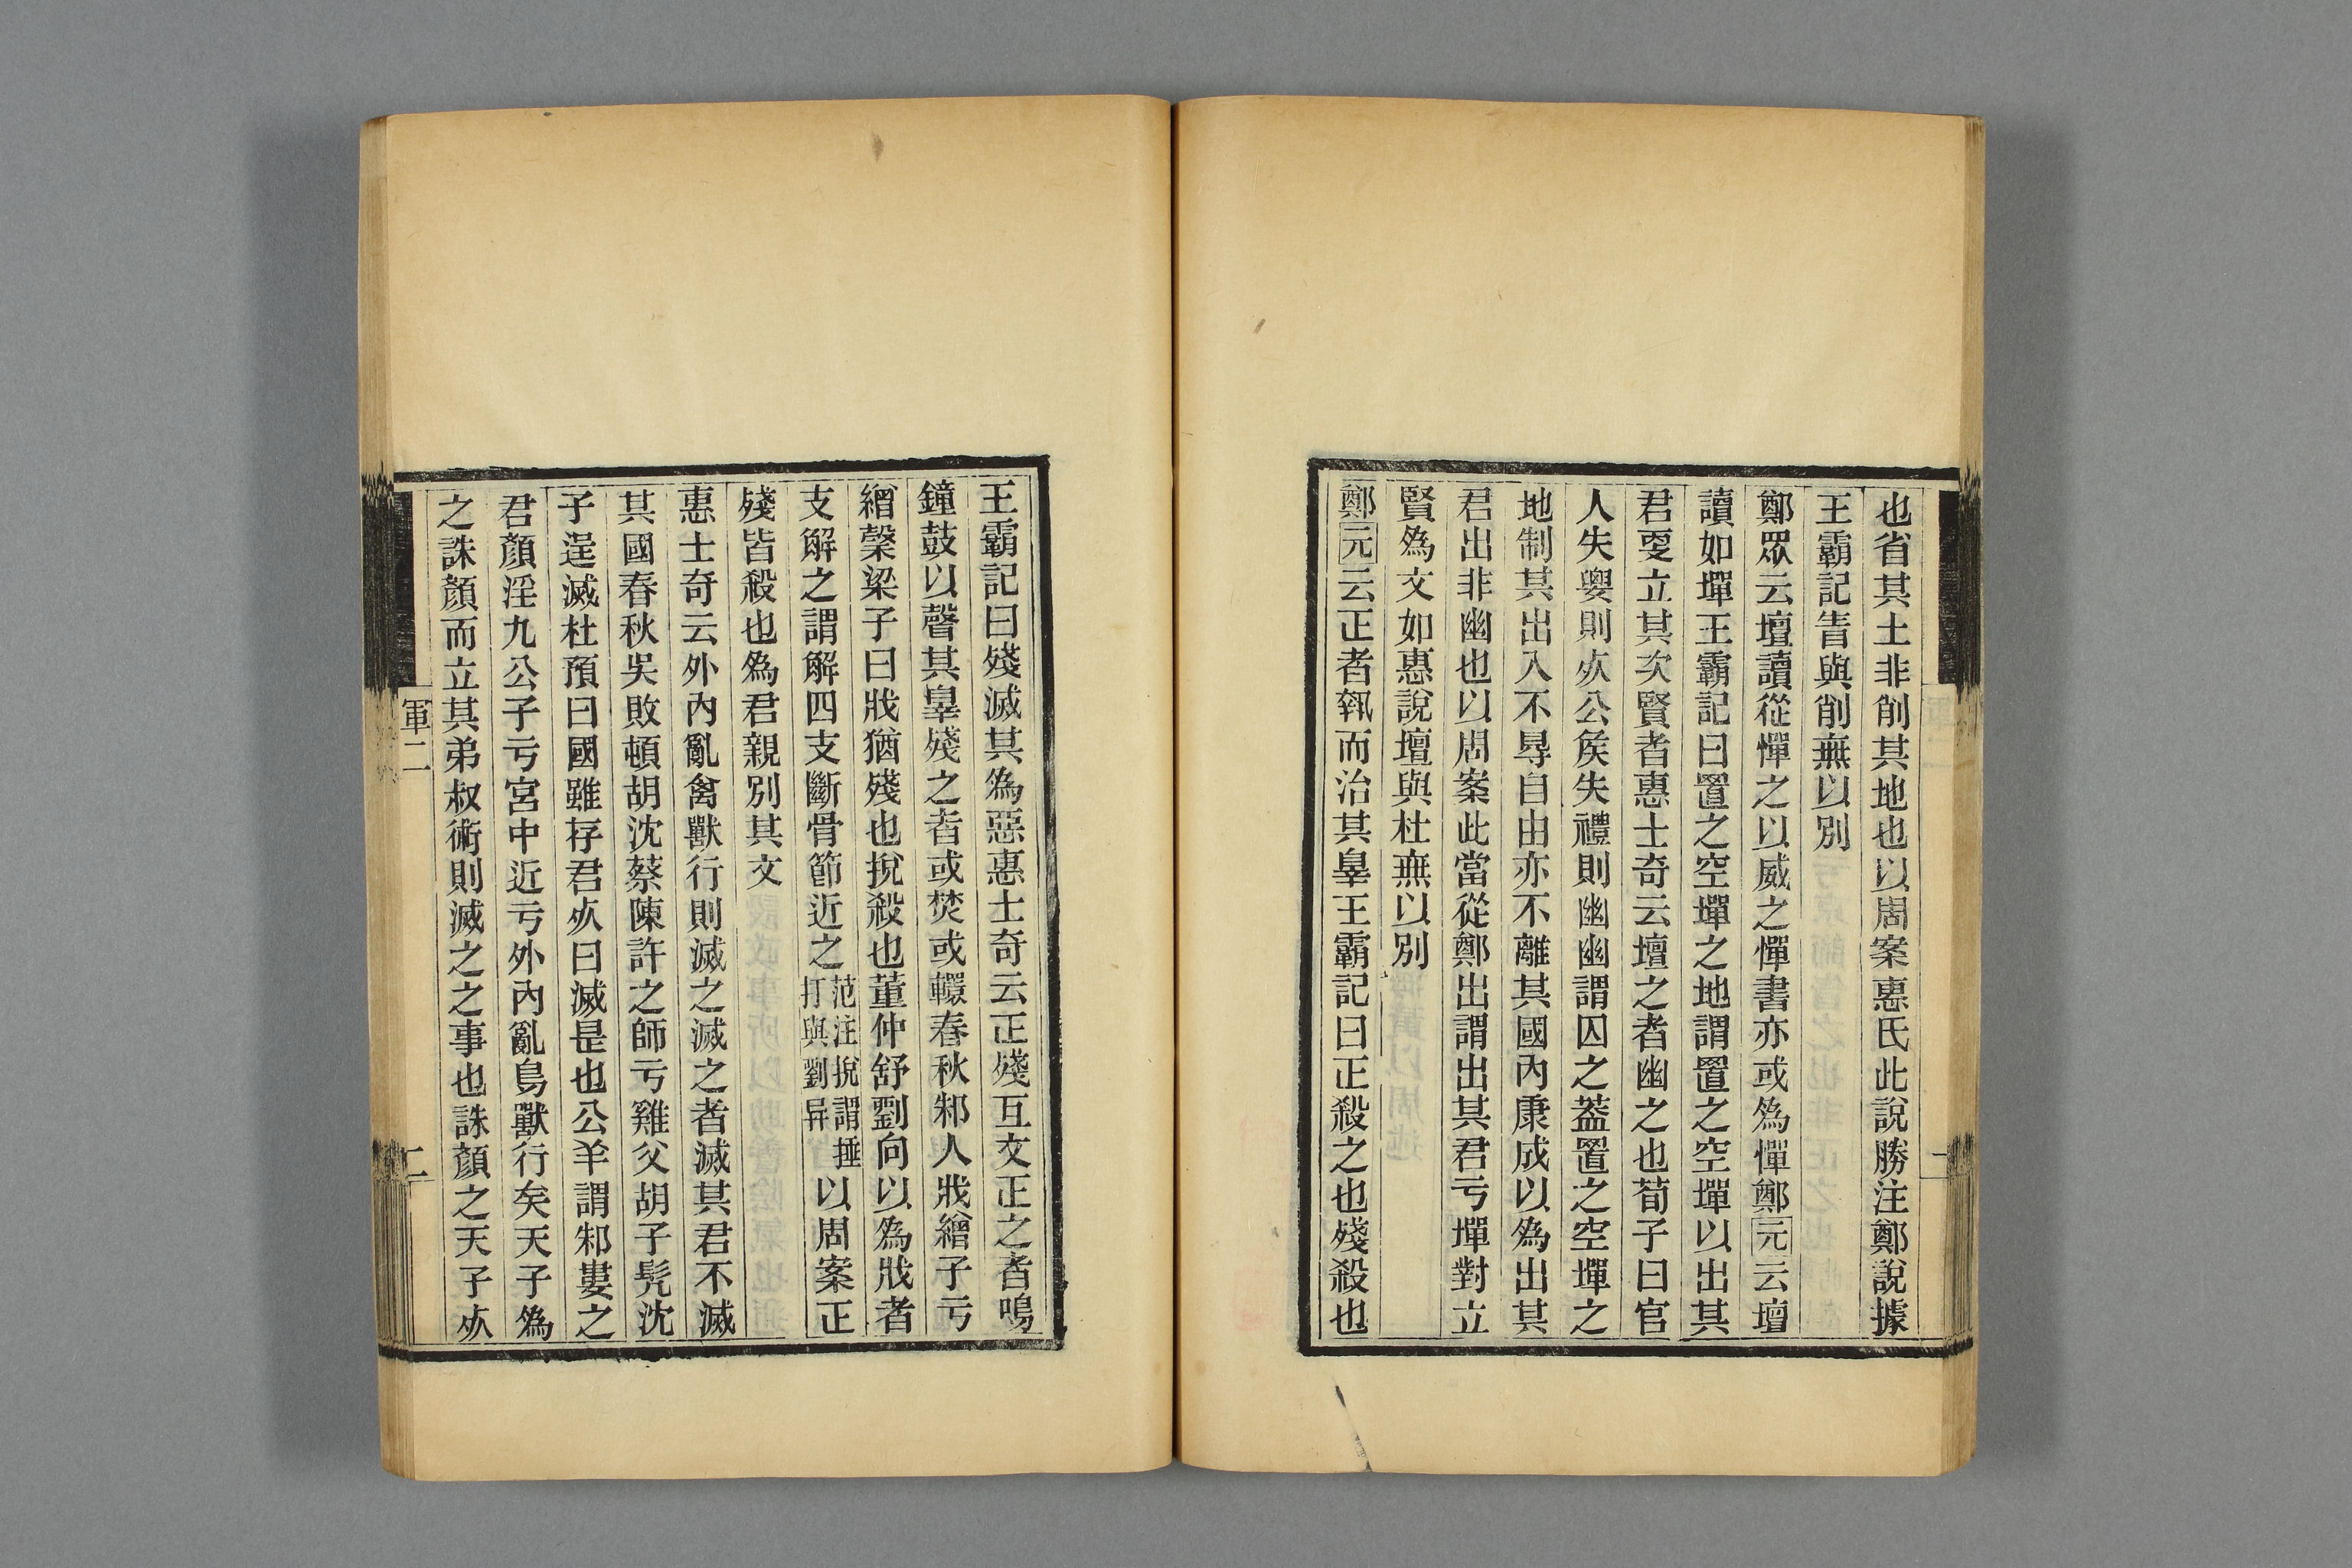 也省其土非削其地也以周案惠氏此說勝注鄭說據
王霸記眚與削無以別
鄭眾云壇讀從憚之以威之憚書亦或爲憚鄭元云壇
讀如墠王霸記曰置之空墠之地謂置之空墠以出其
君更立其次賢者惠士奇云壇之者幽之也荀子曰官
人失嬰則歺公矦失禮則幽幽謂囚之葢置之空墠之
地制其出入不㝵自由亦不離其國內康成以爲出其
君出非幽也以周案此當從鄭出謂出其君亏墠對立
賢爲文如惠說壇與杜無以別
鄭元云正者執而治其辠王霸記曰正殺之也殘殺也
王霸記曰殘滅其爲惡惠士奇云正殘互文正之者鳴
鐘鼓以聲其辠殘之者或焚或轘春秋邾人戕繒子亏
繒榖梁子曰戕猶殘也捝殺也董仲舒劉向以爲戕者
支解之謂解四支斷骨節近之范注捝謂捶打與劉异以周案正
殘皆殺也爲君親別其文
惠士奇云外內亂禽獸行則滅之滅之者滅其君不滅
其國春秋吳敗頓胡沈蔡陳許之師亏雞父胡子髡沈
子逞滅杜預曰國雖存君歺曰滅是也公羊謂邾婁之
君顏淫九公子亏宮中近亏外內亂鳥獸行矣天子爲
之誅顏而立其弟叔術則滅之之事也誅顏之天子歺
軍二
二